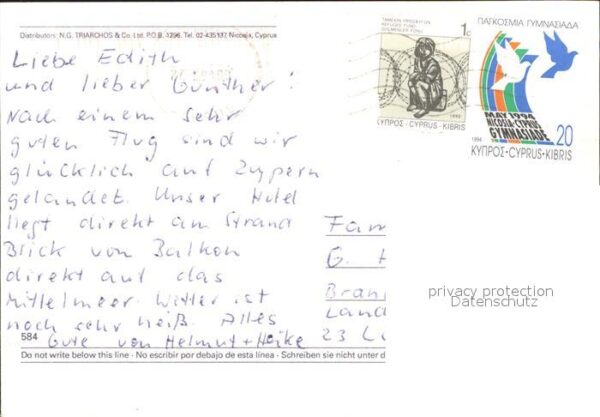 Distributors: N.G. TRIARCHOS & Co. Ltd. P.O.B. 1296. Tel. 02-435137 Nicosia, Cyprus
Liebe Edith
und lieber Günther!
Nach einem sehr
guten Flug sind wir
glücklich auf Zypern
gelandet. Unser Hotel
liegt direkt am Strand
Blick von Balkon
direkt auf das
Mittelmeer. Wetter ist
noch sehr heiß. Alles
Gute von Helmut + Heike
584
Do not write below this line · No escribir por debajo de esta línea · Schreiben sie nicht unter d
REFUGEE FUND
1c
ΚΥΠΡΟΣ·CYPRUS·KIBRIS
ΠΑΓΚΟΣΜΙΑ ΓΥΜΝΑΣΙΑΔΑ
MAY 1994
NICOSIA-CYPRUS
GYMNASIADE
1994
20
ΚΥΠΡΟΣ·CYPRUS·KIBRIS
Fam
G. H
Bran
Land
23 Li
privacy protection
Datenschutz